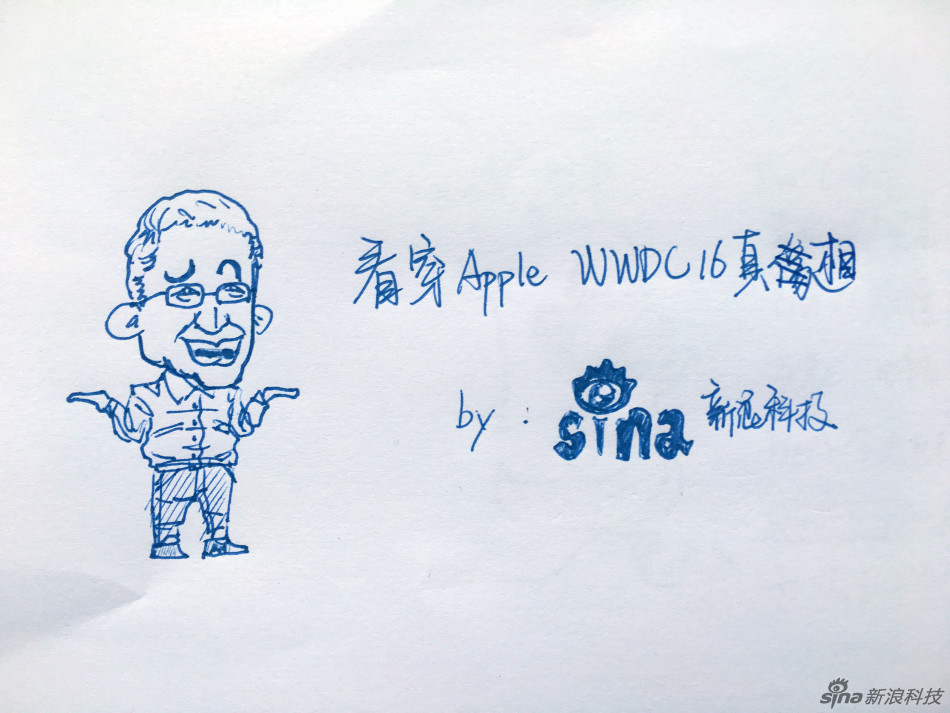 看穿Apple WWDC16真相
by: sina 新浪科技
sina 新浪科技